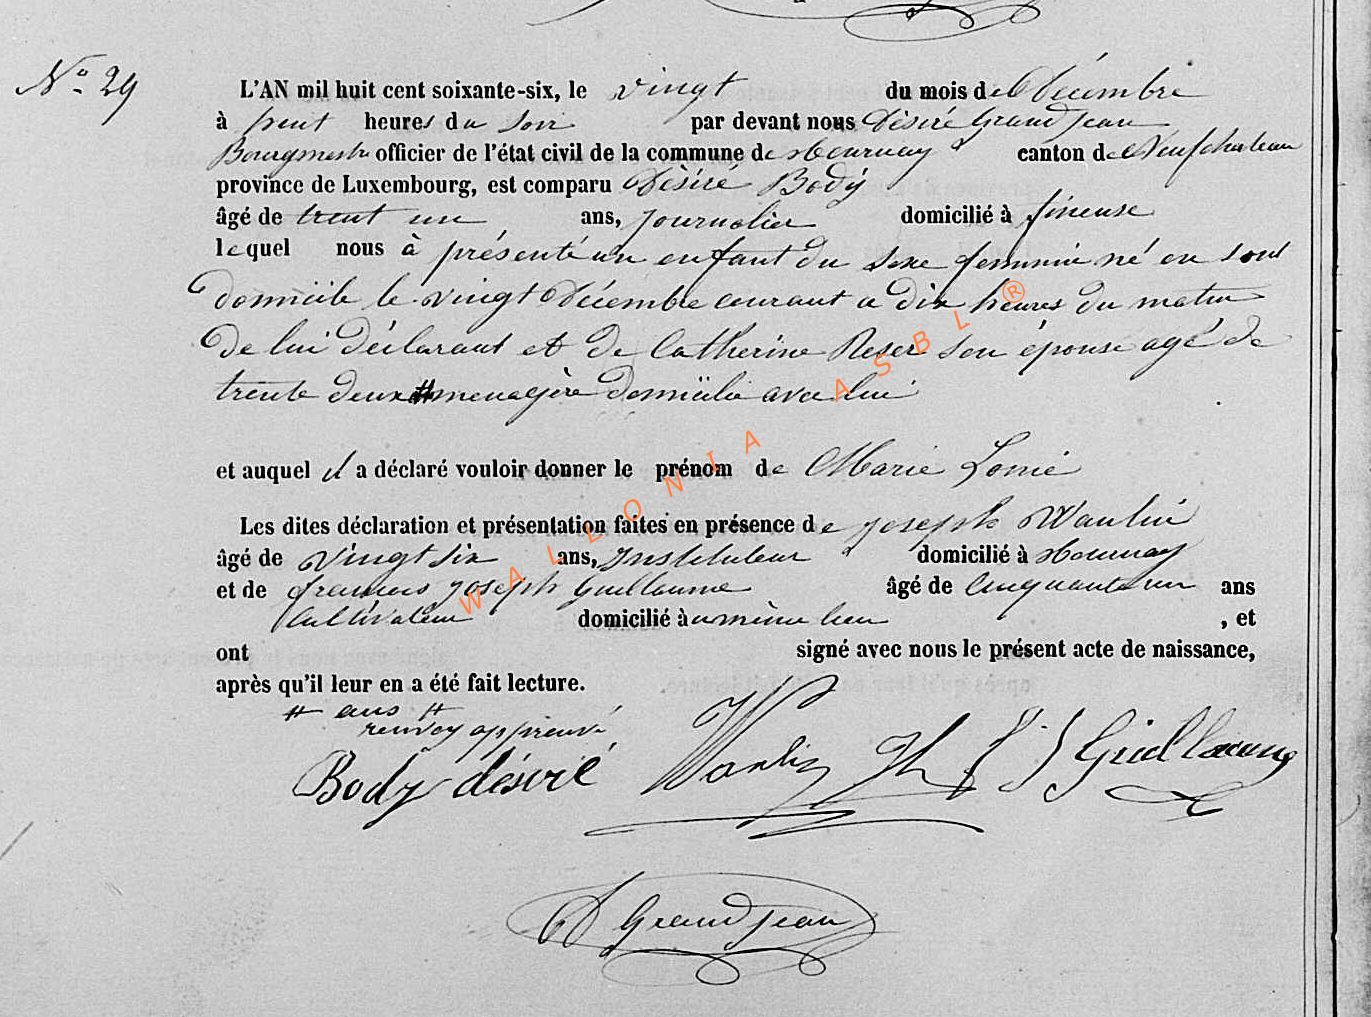 No 29
L'AN mil huit cent soixante-six, le vingt du mois de Décembre
à heures du soir par devant nous Désiré Grandjean
Bourgmestre officier de l'état civil de la commune de Tournay canton de Neufchateau
province de Luxembourg, est comparu Désiré Body
âgé de trent un ans, journalier domicilié à fineuse
lequel nous à présenté un enfant du sexe feminin né en sont
domicile le vingt Décembre courant a dix heures du matin
de lui déclarant et de Catherine Reser son épouse agé de
trente deux # menagère domicilié avec lui
et auquel il a déclaré vouloir donner le prénom de Marie
Les dites déclaration et présentation faites en présence de joseph Wanlin
âgé de vingt six ans, Instituteur domicilié à Tournay
et de francois joseph Guillaume âgé de Cinquante un ans
Cultivateur domicilié à même lieu , et
ont signé avec nous le présent acte de naissance,
après qu'il leur en a été fait lecture.
# ans #
renvoy approuvé
Body désiré Wanlin Jh f. J Guillaume
D Grandjean
WALLONIA ASBL ®